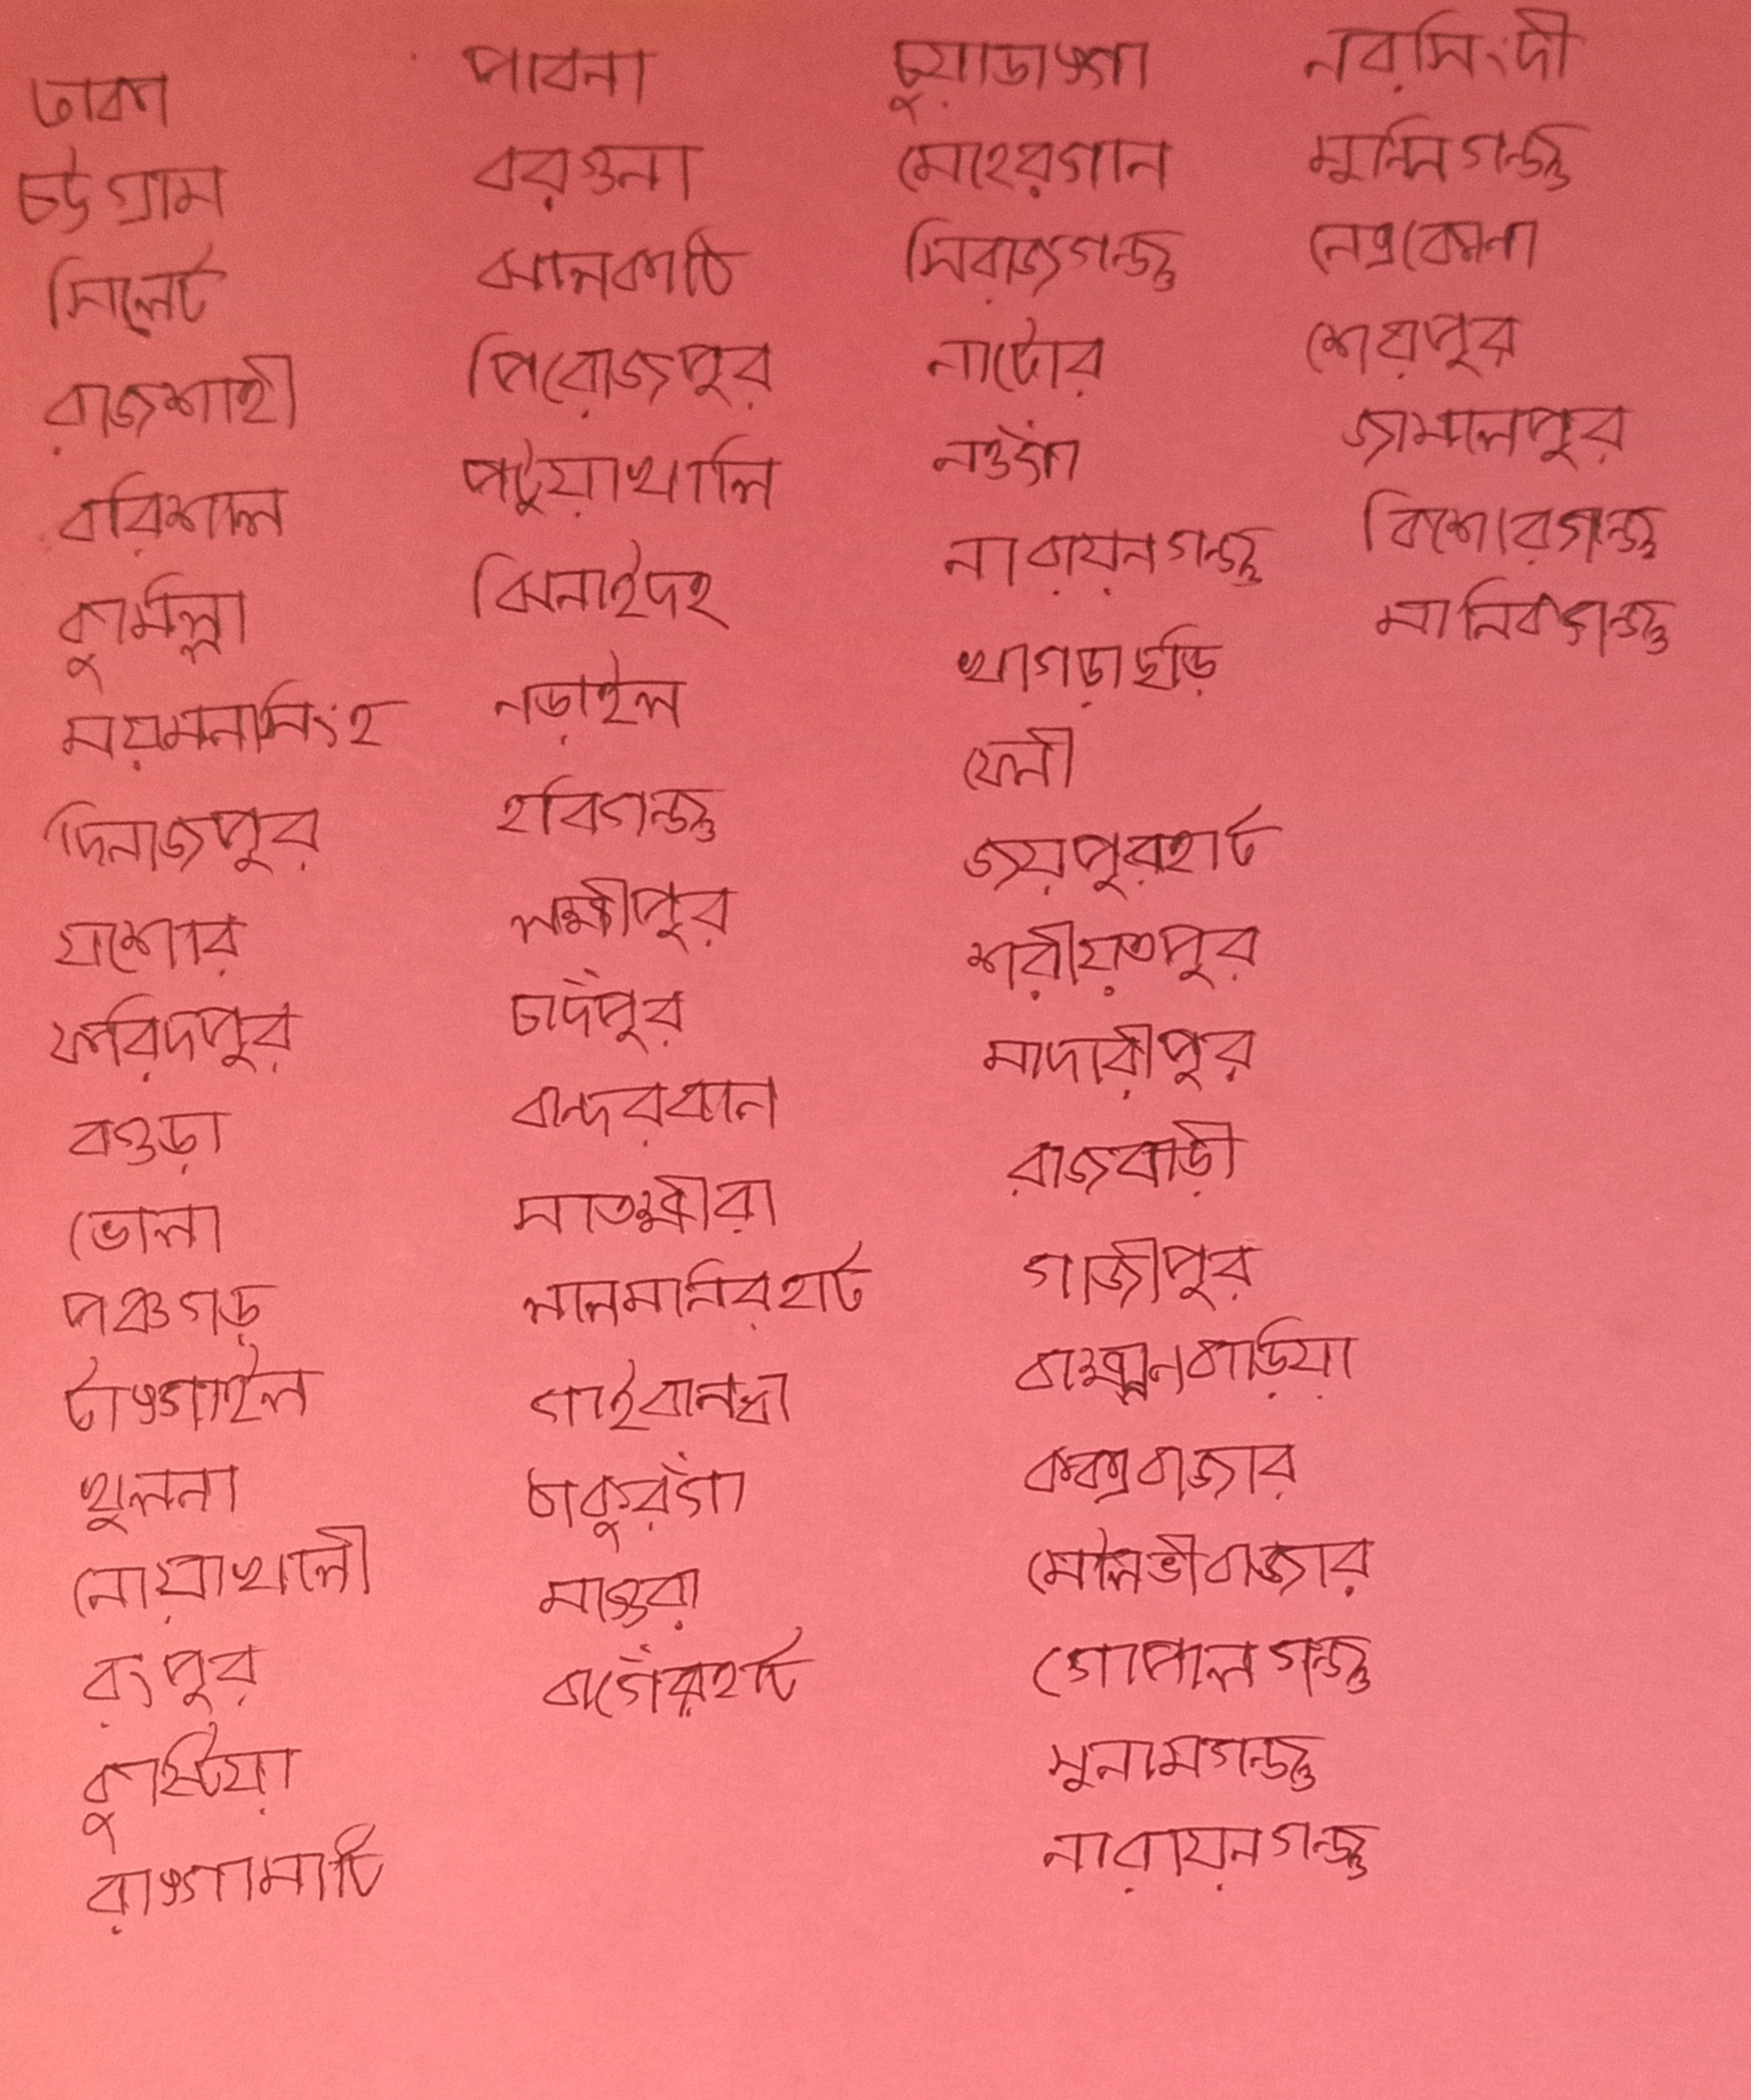 ঢাকা
চট্টগ্রাম
সিলেট
রাজশাহী
বরিশাল
কুমিল্লা
ময়মনসিংহ
দিনাজপুর
যশোর
ফরিদপুর
বগুড়া
ভোলা
পঞ্চগড়
টাঙ্গাইল
খুলনা
নোয়াখালী
রংপুর
কুষ্টিয়া
রাঙ্গামাটি
পাবনা
বরগুনা
ঝালকাঠি
পিরোজপুর
পটুয়াখালি
ঝিনাইদহ
নড়াইল
হবিগন্জ্ঞ
লক্ষীপুর
চাদঁপুর
বান্দরবান
সাতক্ষীরা
লালমানিরহাট
গাইবানধা
ঠাকুরগাঁ
মাগুরা
বাগেঁরহাট
চুয়াডাঙ্গা
মেহেরগান
সিরাজগন্জ্ঞ
নাটোর
নওগাঁ
নারায়নগন্জ্ঞ
খাগড়াছড়ি
ফেনী
জয়পুরহাট
শরীয়তপুর
মাদারীপুর
রাজবাড়ী
গাজীপুর
বাহ্মনবাড়িয়া
কক্সবাজার
মৌলভীবাজার
গোপালগন্জ্ঞ
সুনামগন্জ্ঞ
নারায়নগন্জ্ঞ
নরসিংদী
মুন্সিগন্জ্ঞ
নেত্রকোনা
শেরপুর
জামালপুর
কিশোরগন্জ্ঞ
মানিকগন্জ্ঞ